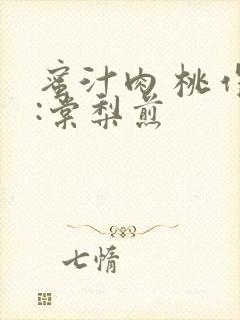 蜜汁肉 桃 作
:棠梨煎
七情